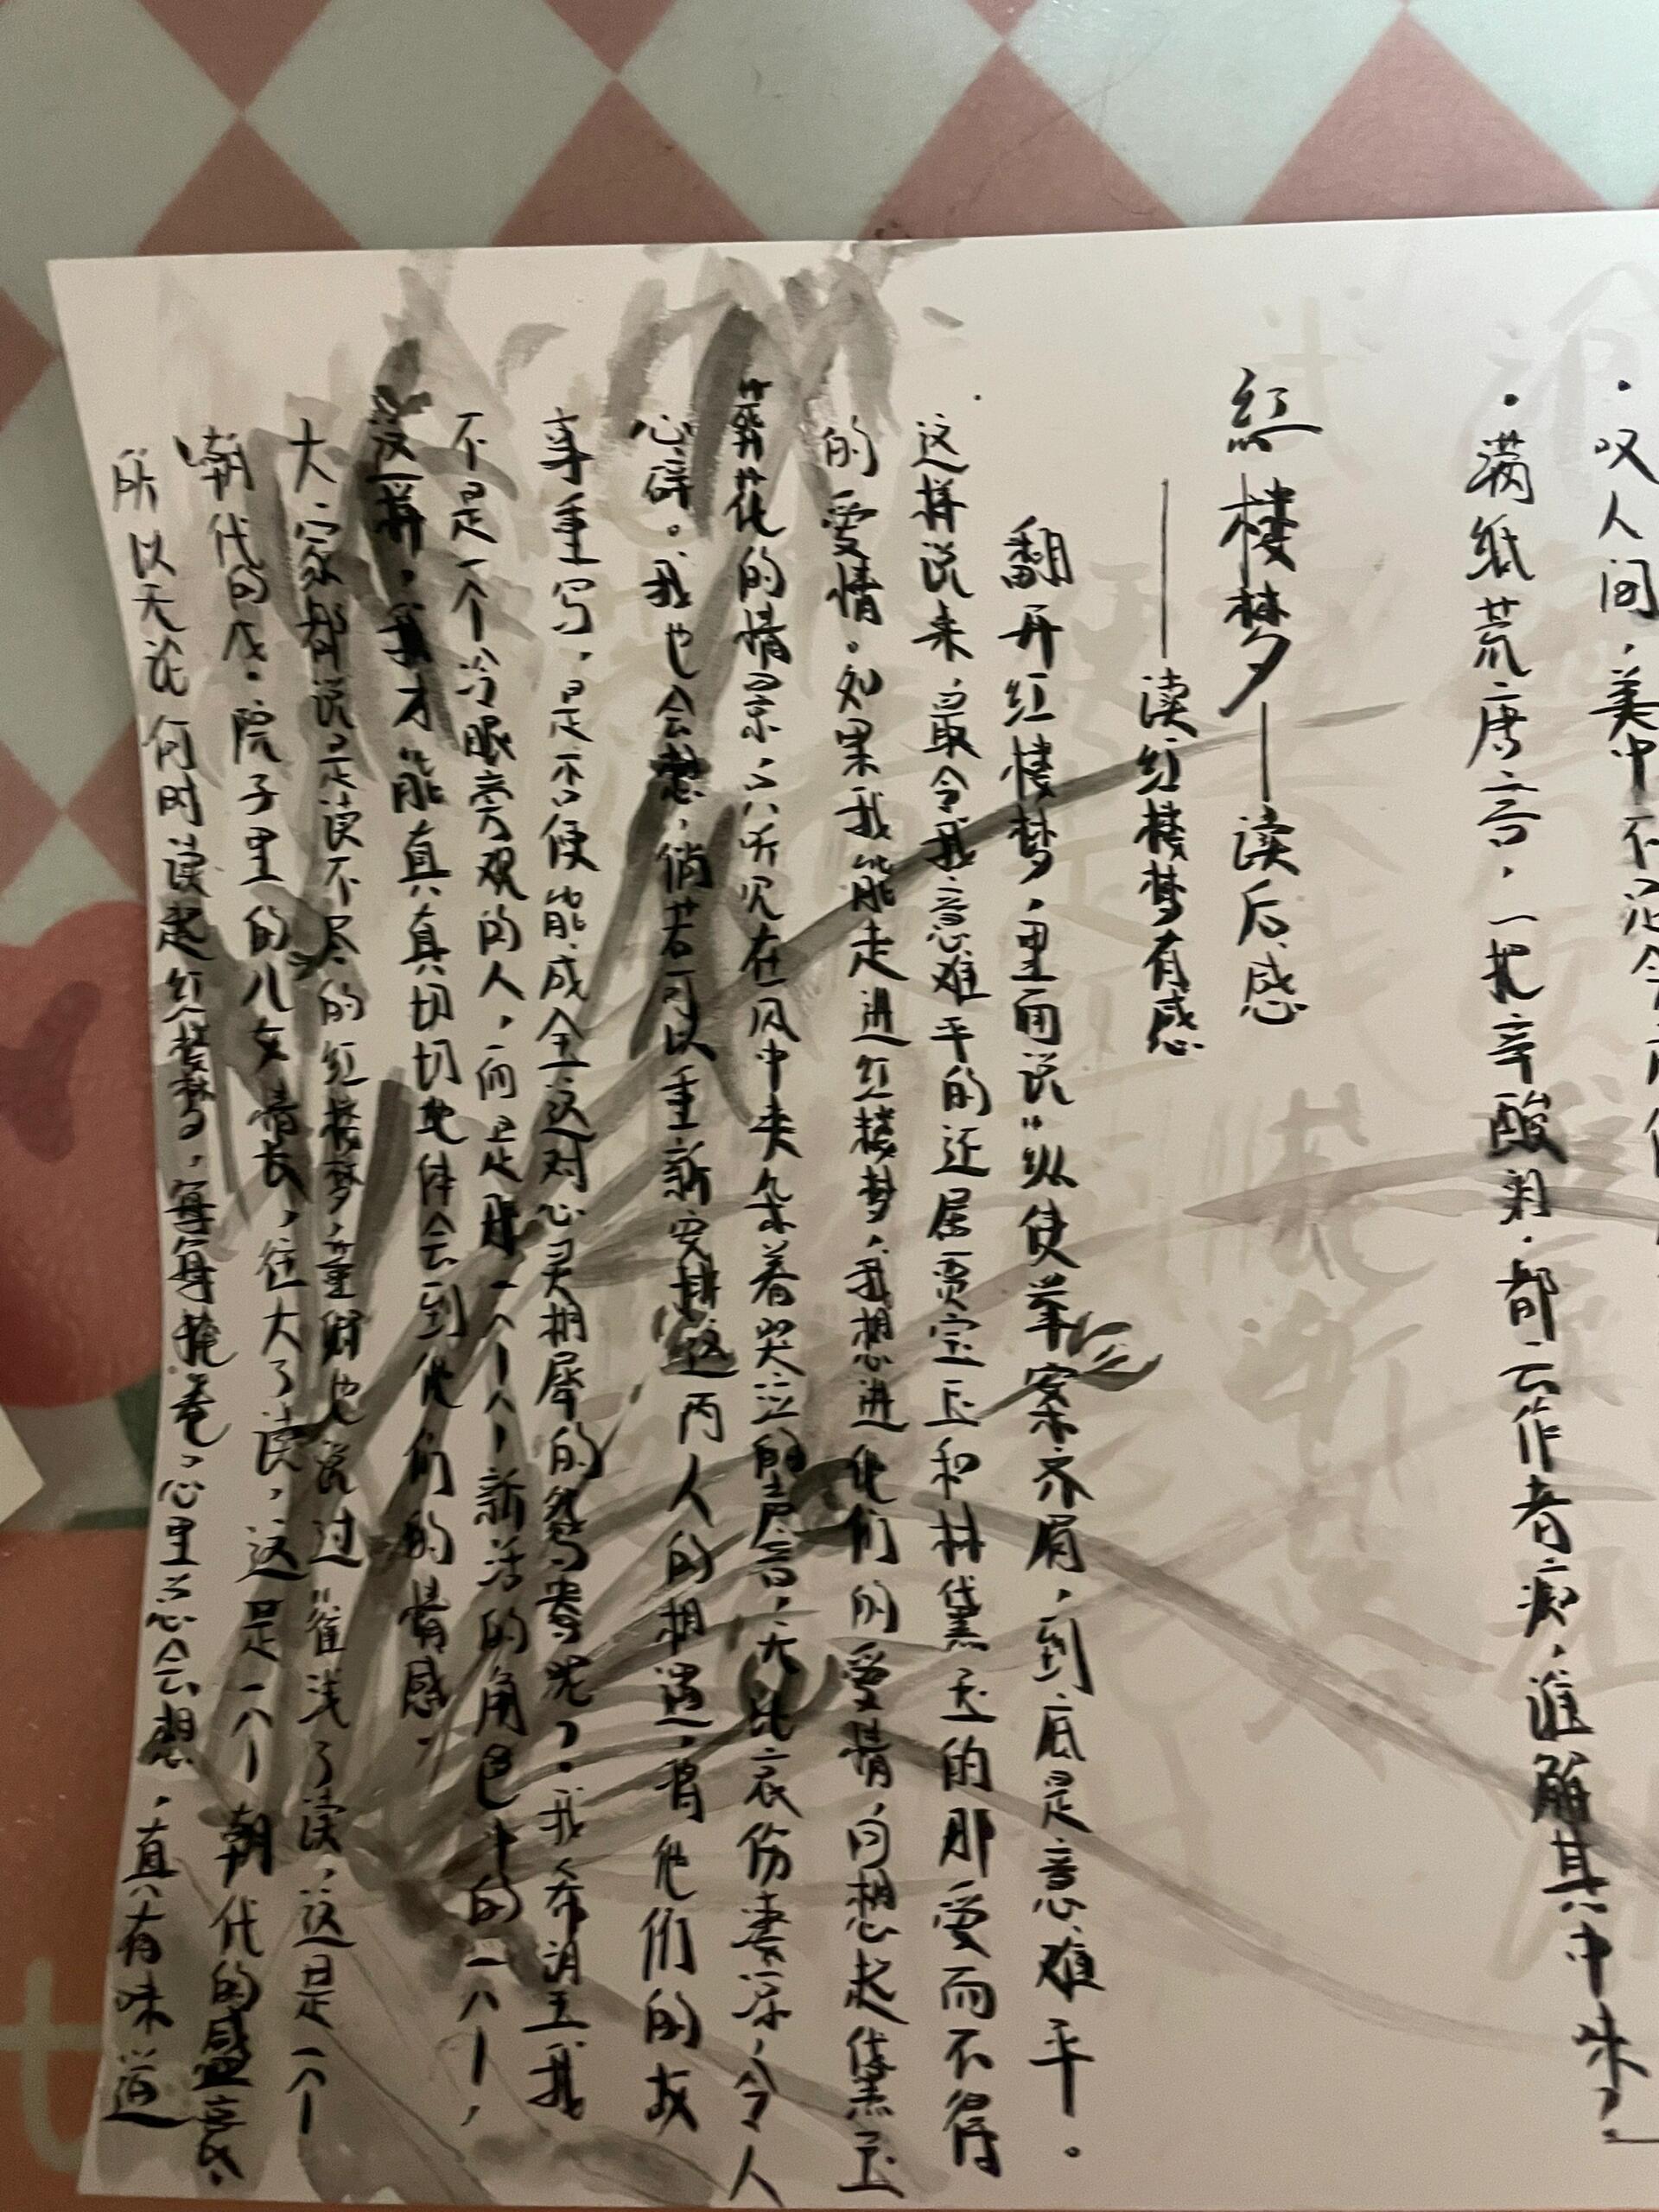 ·叹人间,美中不足今方
·满纸荒唐言,一把辛酸泪.都云作者痴,谁解其中味?」
红楼梦——读后感
——读红楼梦有感
翻开红楼梦,里面说"纵使举案齐眉,到底是意难平。
这样说来,最令我意难平的还属贾宝玉和林黛玉的那爱而不得
的爱情。如果我能走进红楼梦,我想进他们的爱情,向想起黛玉
葬花的情景,只听见在风中夹杂着哭泣的声音,无比哀伤凄凉,令人
心碎。我也会想,倘若可以重新安排这两人的相遇,将他们的故
事重写,是不便能成全这对心灵相犀的鸳鸯呢?。我希望我
不是一个冷眼旁观的人,而是用一个个新活的角色中的一个,
这样,我才能真真切切地体会到他们的情感
大家都说是读不尽的红楼梦,董卿也说过"往浅了读,这是一个
朝代的.院子里的儿女情长,往大了读,这是一个朝代的盛衰.
所以无论何时读起红楼梦,每每掩卷,心里总会想,真有味道